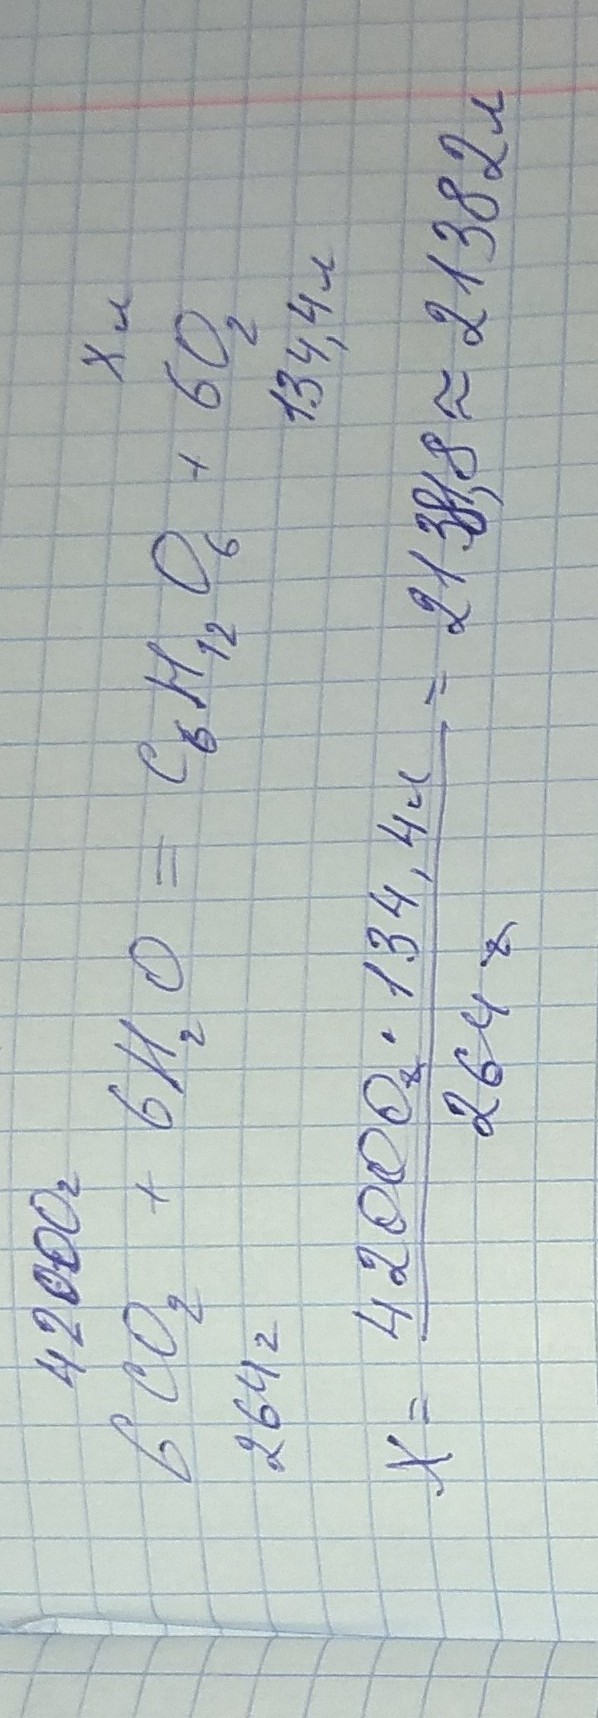 42000г х л
6CO₂ + 6H₂O = C₆H₁₂O₆ + 6O₂
264г 134,4л
X = 42000г · 134,4л / 264г = 21381,8 ≈ 21382л